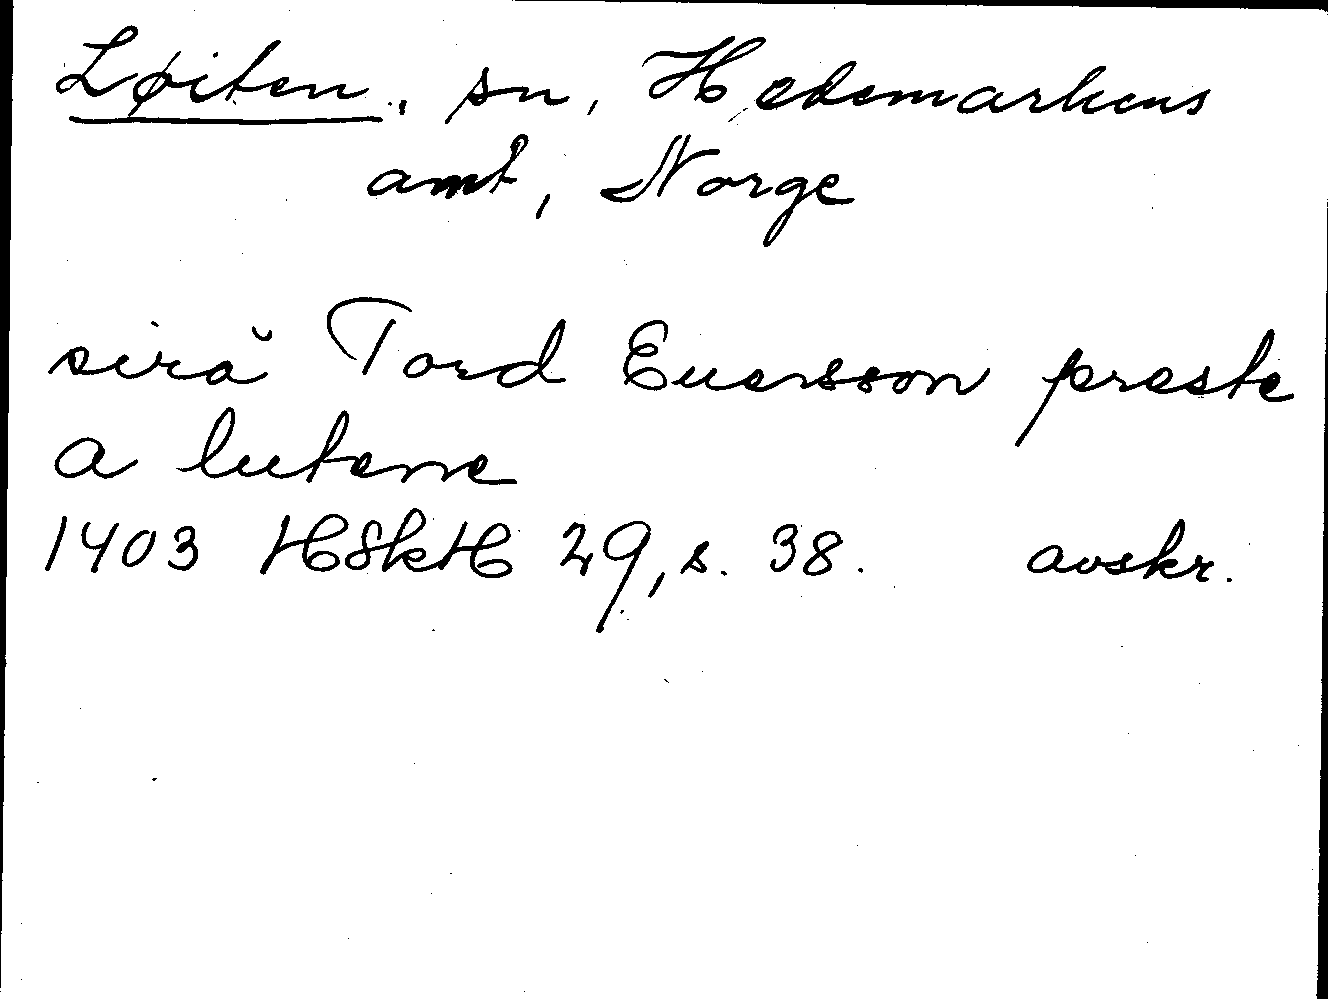 Løiten, sn, Hedemarkens
amt, Norge
sira Tord Euersson preste
a lutene
1403 HSkH 29, s. 38. avskr.